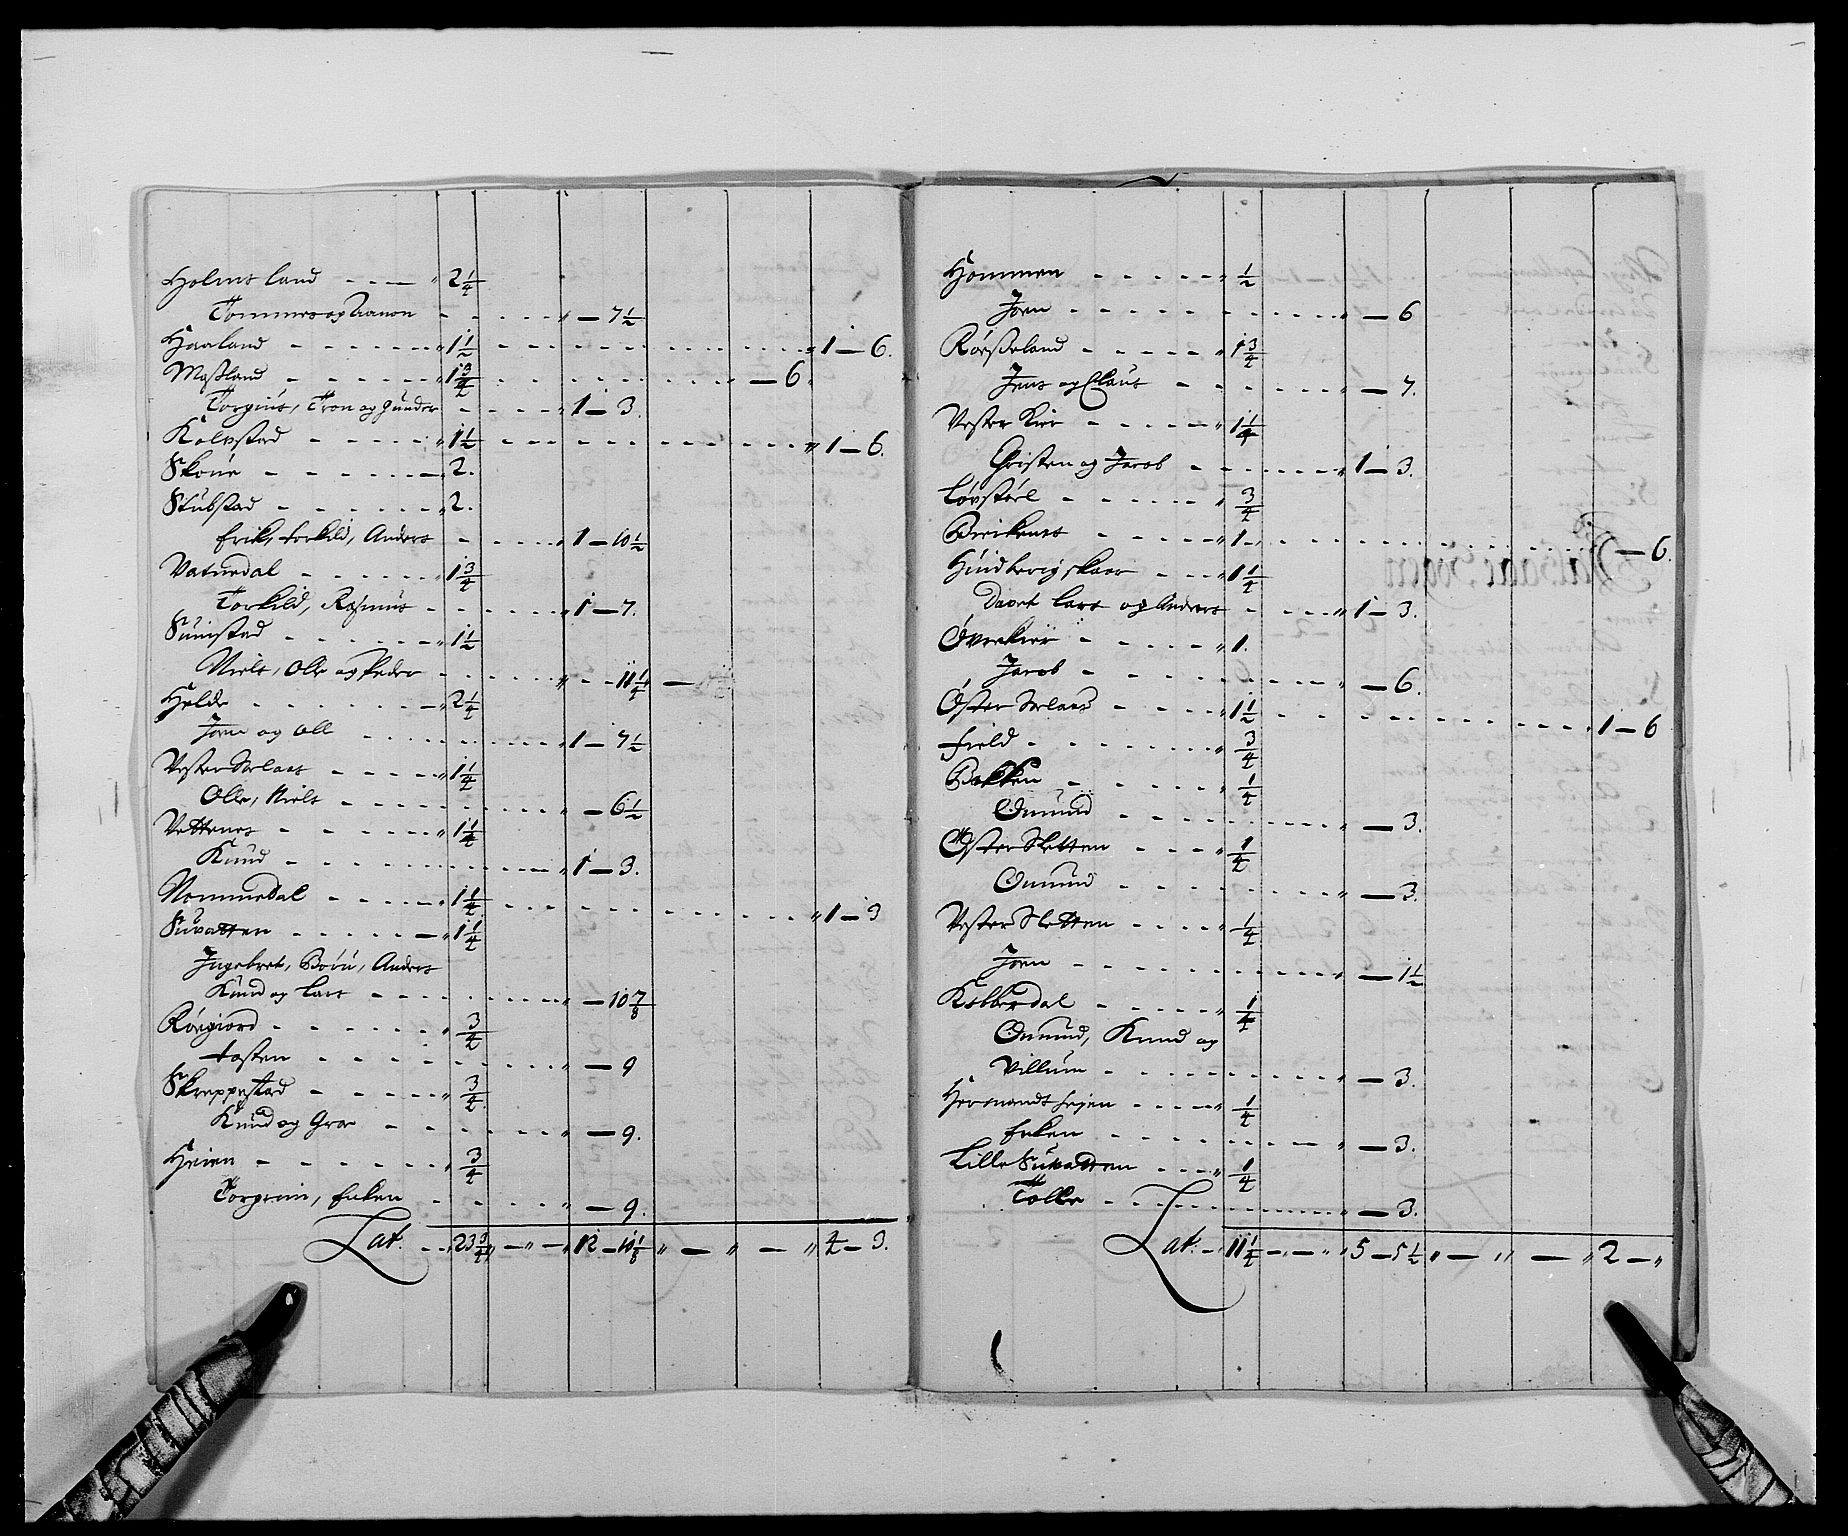 Holmesland - - - " 2 1/4
Tommes og Aanon - - - - - " - 7 1/2
Haaland - - - - - " 1 1/2 - - - - - - - " 1 - 6.
Moßland - - - - - " 1 3/4 - - - - - - - 6
Torgius, Tron og Gunder - - - - " 1 - 3.
Kolvstad - - - - - " 1 1/2 - - - - - - - " 1 - 6.
Skoùe - - - - - - 2.
Stubstad - - - - - " 2.
Erik, torkild, Anders - - - - - 1 - 10 1/2
Vatnedal - - - - - " 1 3/4
Torkild, Rasmus - - - - - " 1 - 7.
Sunnstad - - - - - " 1 1/2
Niels, Olle og Peder - - - - - " - - 11 1/4 -
Helde - - - - - - 2 1/4
Jørn og Oll - - - - - " 1 - 7 1/2
Vester Selaas - - - - - " 1 1/4
Olle, Niels - - - - - " - 6 1/2
Vettenes - - - - - " 1 1/4
Knud - - - - - 1 - 3.
Nommedal - - - - - " 1 1/4 - - - - - - - " 1 - 3
Suvatten - - - - - " 1 1/4
Ingebret, Biørn, Anders
Knud og Lars - - - - - " - 10 7/8
Rørgiord - - - - - " 3/4
tosten - - - - - " - 9
Skreppestad - - - - - " 3/4
Knud og Groe - - - - - " - 9.
Heien - - - - - " 3/4
Torgrim, Enken - - - - - " - 9.
Lat. - - 23 3/4 " - " - " 12 - 10 1/8 " - " - " 4 - 3.
Hommen - - - - - " 1/2
Jørn - - - - - " - 6
Rørßeland - - - - - " 1 3/4
Jens og Claus - - - - - " - 7.
Vester Kier - - - - - " 1 1/4
Christen og Jacob - - - - - " 1 - 3.
Løvstøel - - - - - " 3/4
Birikenes - - - - - " 1 - - - - - - - - 6.
Hundberigskaar - - - " 1 1/4
Davet Lars og Anders - - - - " 1 - 3.
Øvrekier - - - - - " 1.
Jacob - - - - - " - 6.
Øster Selaas - - - - - " 1 1/2 - - - - - - - " 1 - 6
Field - - - - - " 3/4
Bakken - - - - - " 1/4
Omund - - - - - " - 3.
Øster Sletten - - - - " 1/4
Omund - - - - - " - 3.
Vester Sletten - - - - " 1/4
Jørn - - - - - " - 1 1/2
Kebberdal - - - - - " 1/4
Omund, Knud og
Villum - - - - - " - 3.
Hermandsheyen - - - - " 1/4
Enken - - - - - " - 3.
Lille Suvatten - - - - " 1/4
Tolle - - - - - " - 3.
Lat. - " 11 1/2 - " - " 5 - 5 1/2 " - " - " 2 - "